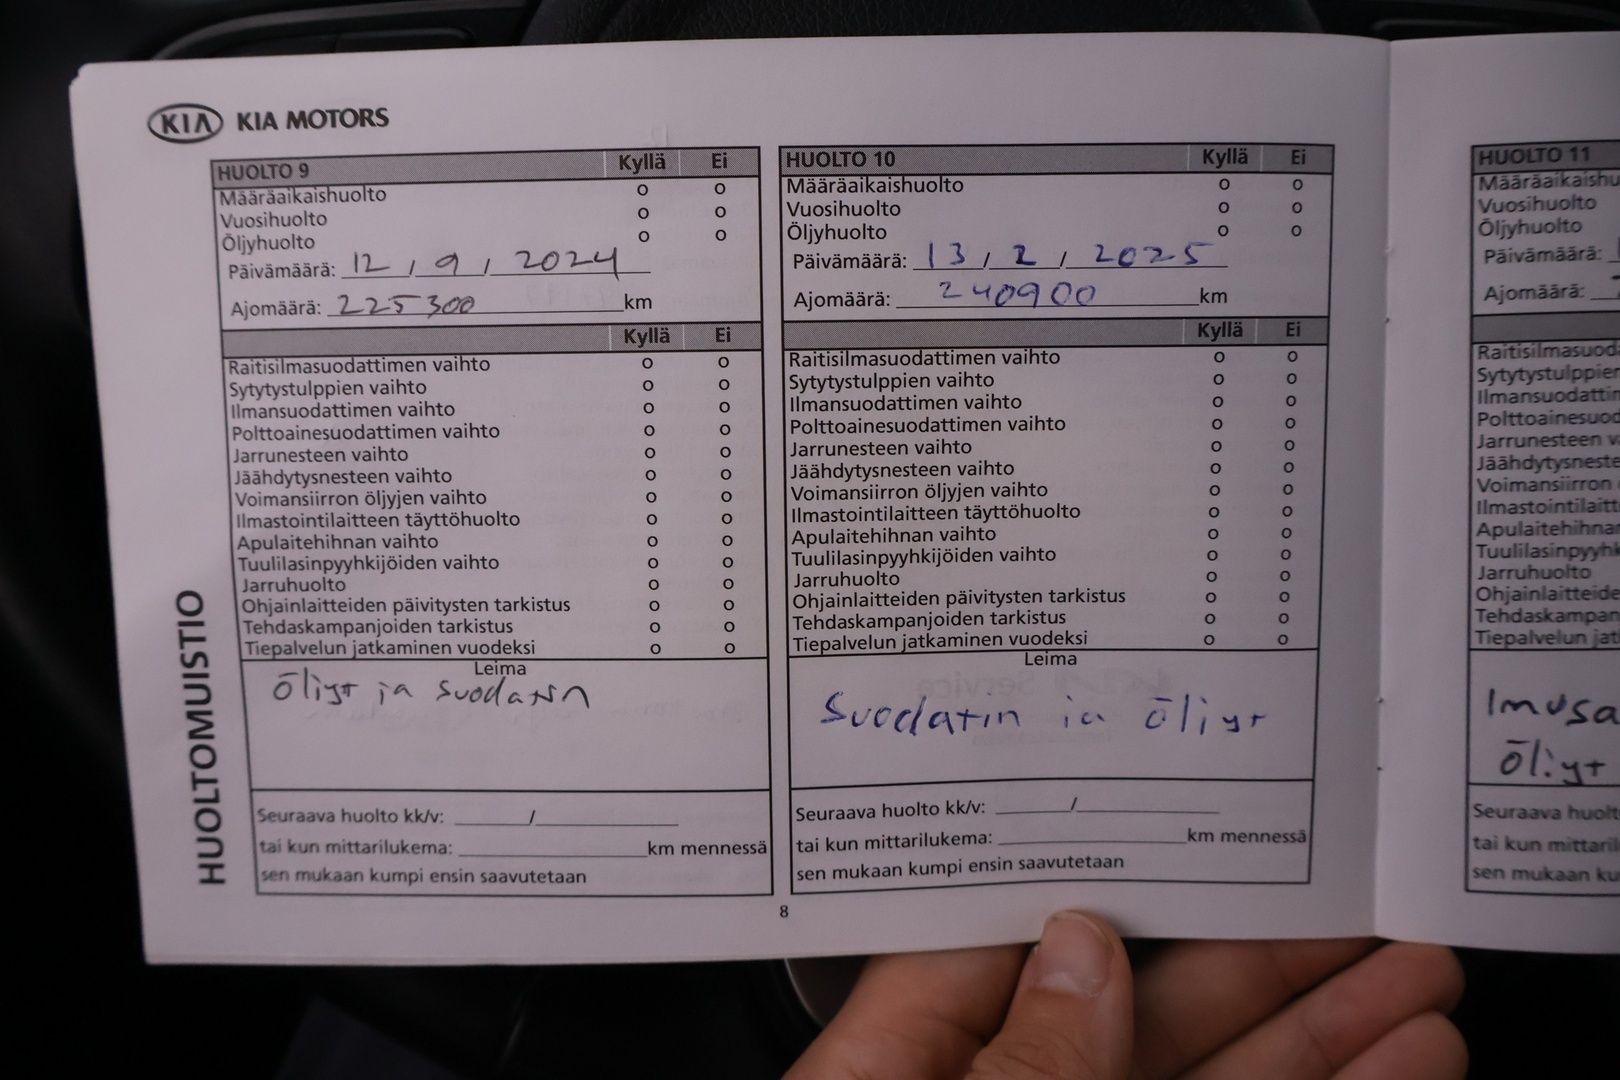 KIA KIA MOTORS
HUOLTOMUISTIO
HUOLTO 9 Kyllä Ei
Määräaikaishuolto o o
Vuosihuolto o o
Öljyhuolto o o
Päivämäärä: 12 / 9 / 2024
Ajomäärä: 225300 km
Kyllä Ei
Raitisilmasuodattimen vaihto o o
Sytytystulppien vaihto o o
Ilmansuodattimen vaihto o o
Polttoainesuodattimen vaihto o o
Jarrunesteen vaihto o o
Jäähdytysnesteen vaihto o o
Voimansiirron öljyjen vaihto o o
Ilmastointilaitteen täyttöhuolto o o
Apulaitehihnan vaihto o o
Tuulilasinpyyhkijöiden vaihto o o
Jarruhuolto o o
Ohjainlaitteiden päivitysten tarkistus o o
Tehdaskampanjoiden tarkistus o o
Tiepalvelun jatkaminen vuodeksi o o
Leima
Öljyt ja suodatin
Seuraava huolto kk/v: /
tai kun mittarilukema: km mennessä
sen mukaan kumpi ensin saavutetaan
HUOLTO 10 Kyllä Ei
Määräaikaishuolto o o
Vuosihuolto o o
Öljyhuolto o o
Päivämäärä: 13 / 2 / 2025
Ajomäärä: 240900 km
Kyllä Ei
Raitisilmasuodattimen vaihto o o
Sytytystulppien vaihto o o
Ilmansuodattimen vaihto o o
Polttoainesuodattimen vaihto o o
Jarrunesteen vaihto o o
Jäähdytysnesteen vaihto o o
Voimansiirron öljyjen vaihto o o
Ilmastointilaitteen täyttöhuolto o o
Apulaitehihnan vaihto o o
Tuulilasinpyyhkijöiden vaihto o o
Jarruhuolto o o
Ohjainlaitteiden päivitysten tarkistus o o
Tehdaskampanjoiden tarkistus o o
Tiepalvelun jatkaminen vuodeksi o o
Leima
Suodatin ja öljyt
Seuraava huolto kk/v: /
tai kun mittarilukema: km mennessä
sen mukaan kumpi ensin saavutetaan
8
HUOLTO 11
Määräaikaishu
Vuosihuolto
Öljyhuolto
Päivämäärä:
Ajomäärä:
Raitisilmasuod
Sytytystulppien
Ilmansuodattim
Polttoainesuod
Jarrunesteen v
Jäähdytysneste
Voimansiirron
Ilmastointilaitt
Apulaitehihna
Tuulilasinpyyhk
Jarruhuolto
Ohjainlaitteide
Tehdaskampan
Tiepalvelun jat
Imusa
Öljyt
Seuraava huolt
tai kun mittaril
sen mukaan ku